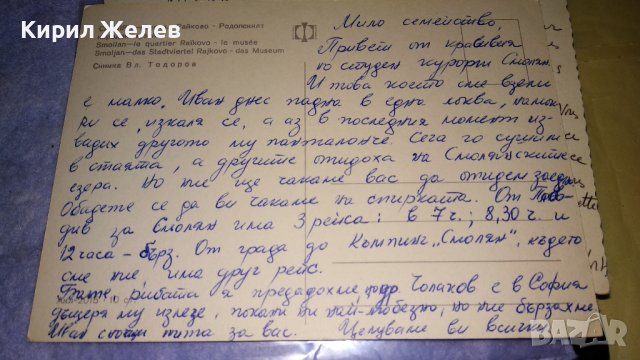 Кирил Желев
Райково - Родопският
Smoljan—le quartier Raikovo - le musée
Smoljan—das Stadtviertel Rajkovo - das Museum
Снимка Вл. Тодоров
Мило семейство
Привет от красивия
но студен курорт Смолян.
И това което сме взели
е малко. Иван днес падна в една локва, намок
ри се, изкаля се, а аз в последния момент из-
вадих другото му панталонче. Сега го сушим
в стаята, а другите отидоха на Смолянските
езера. Но ние ще чакаме вас да отидем заедно
Обадете се да ви чакаме на спирката. От Плов-
див за Смолян има 3 рейса: в 7 ч.; 8,30 ч. и
12 часа - бърз. От града до къмпинг „Смолян", където
сме ние, има друг рейс.
рибата я предадохме, др. Чолаков е в София
дъщеря му излезе, покани ни най-любезно, но ние бързахме
Иван пита за вас. Целуваме ви всички
BAZAR